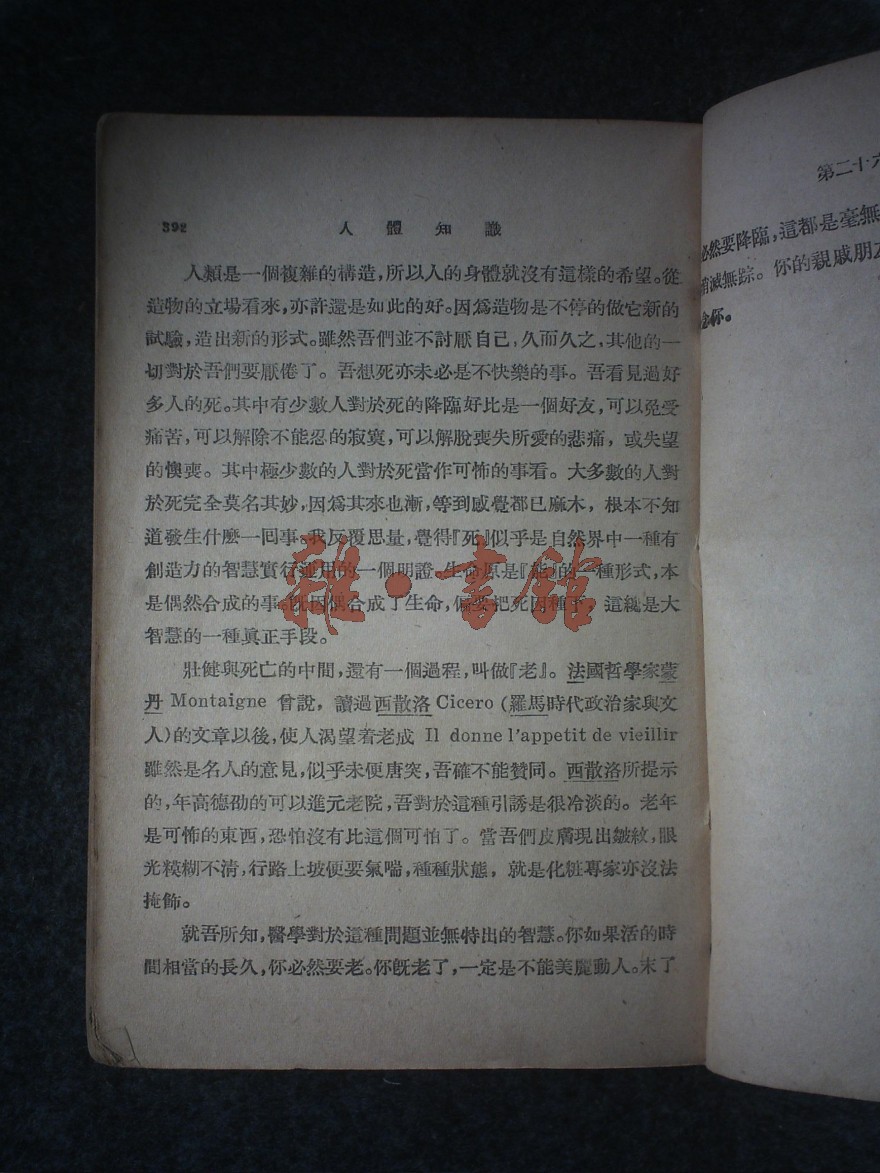 392 人體知識
人類是一個複雜的構造，所以人的身體就沒有這樣的希望。從
造物的立場看來，亦許還是如此的好。因爲造物是不停的做它新的
試驗，造出新的形式。雖然吾們並不討厭自己，久而久之，其他的一
切對於吾們要厭倦了。吾想死亦未必是不快樂的事。吾看見過好
多人的死。其中有少數人對於死的降臨好比是一個好友，可以免受
痛苦，可以解除不能忍的寂寞，可以解脫喪失所愛的悲痛，或失望
的懊喪。其中極少數的人對於死當作可怖的事看。大多數的人對
於死完全莫名其妙，因爲其來也漸，等到感覺都已麻木，根本不知
道發生什麼一回事。我反覆思量，覺得『死』似乎是自然界中一種有
創造力的智慧實行運用的一個明證。生命原是『能』的一種形式，本
是偶然合成的事，旣因偶合成了生命，偏要把死因種下，這纔是大
智慧的一種眞正手段。
壯健與死亡的中間，還有一個過程，叫做『老』。法國哲學家蒙
丹 Montaigne 曾說，讀過西散洛 Cicero（羅馬時代政治家與文
人）的文章以後，使人渴望着老成 Il donne l'appetit de vieillir
雖然是名人的意見，似乎未便唐突，吾確不能贊同。西散洛所提示
的，年高德劭的可以進元老院，吾對於這種引誘是很冷淡的。老年
是可怖的東西，恐怕沒有比這個可怕了。當吾們皮膚現出皺紋，眼
光糢糊不清，行路上坡便要氣喘，種種狀態，就是化粧專家亦沒法
掩飾。
就吾所知，醫學對於這種問題並無特出的智慧。你如果活的時
間相當的長久，你必然要老。你旣老了，一定是不能美麗動人。末了
第二十六
必然要降臨，這都是毫無
消滅無踪。你的親戚朋友
念你。
雜·書館